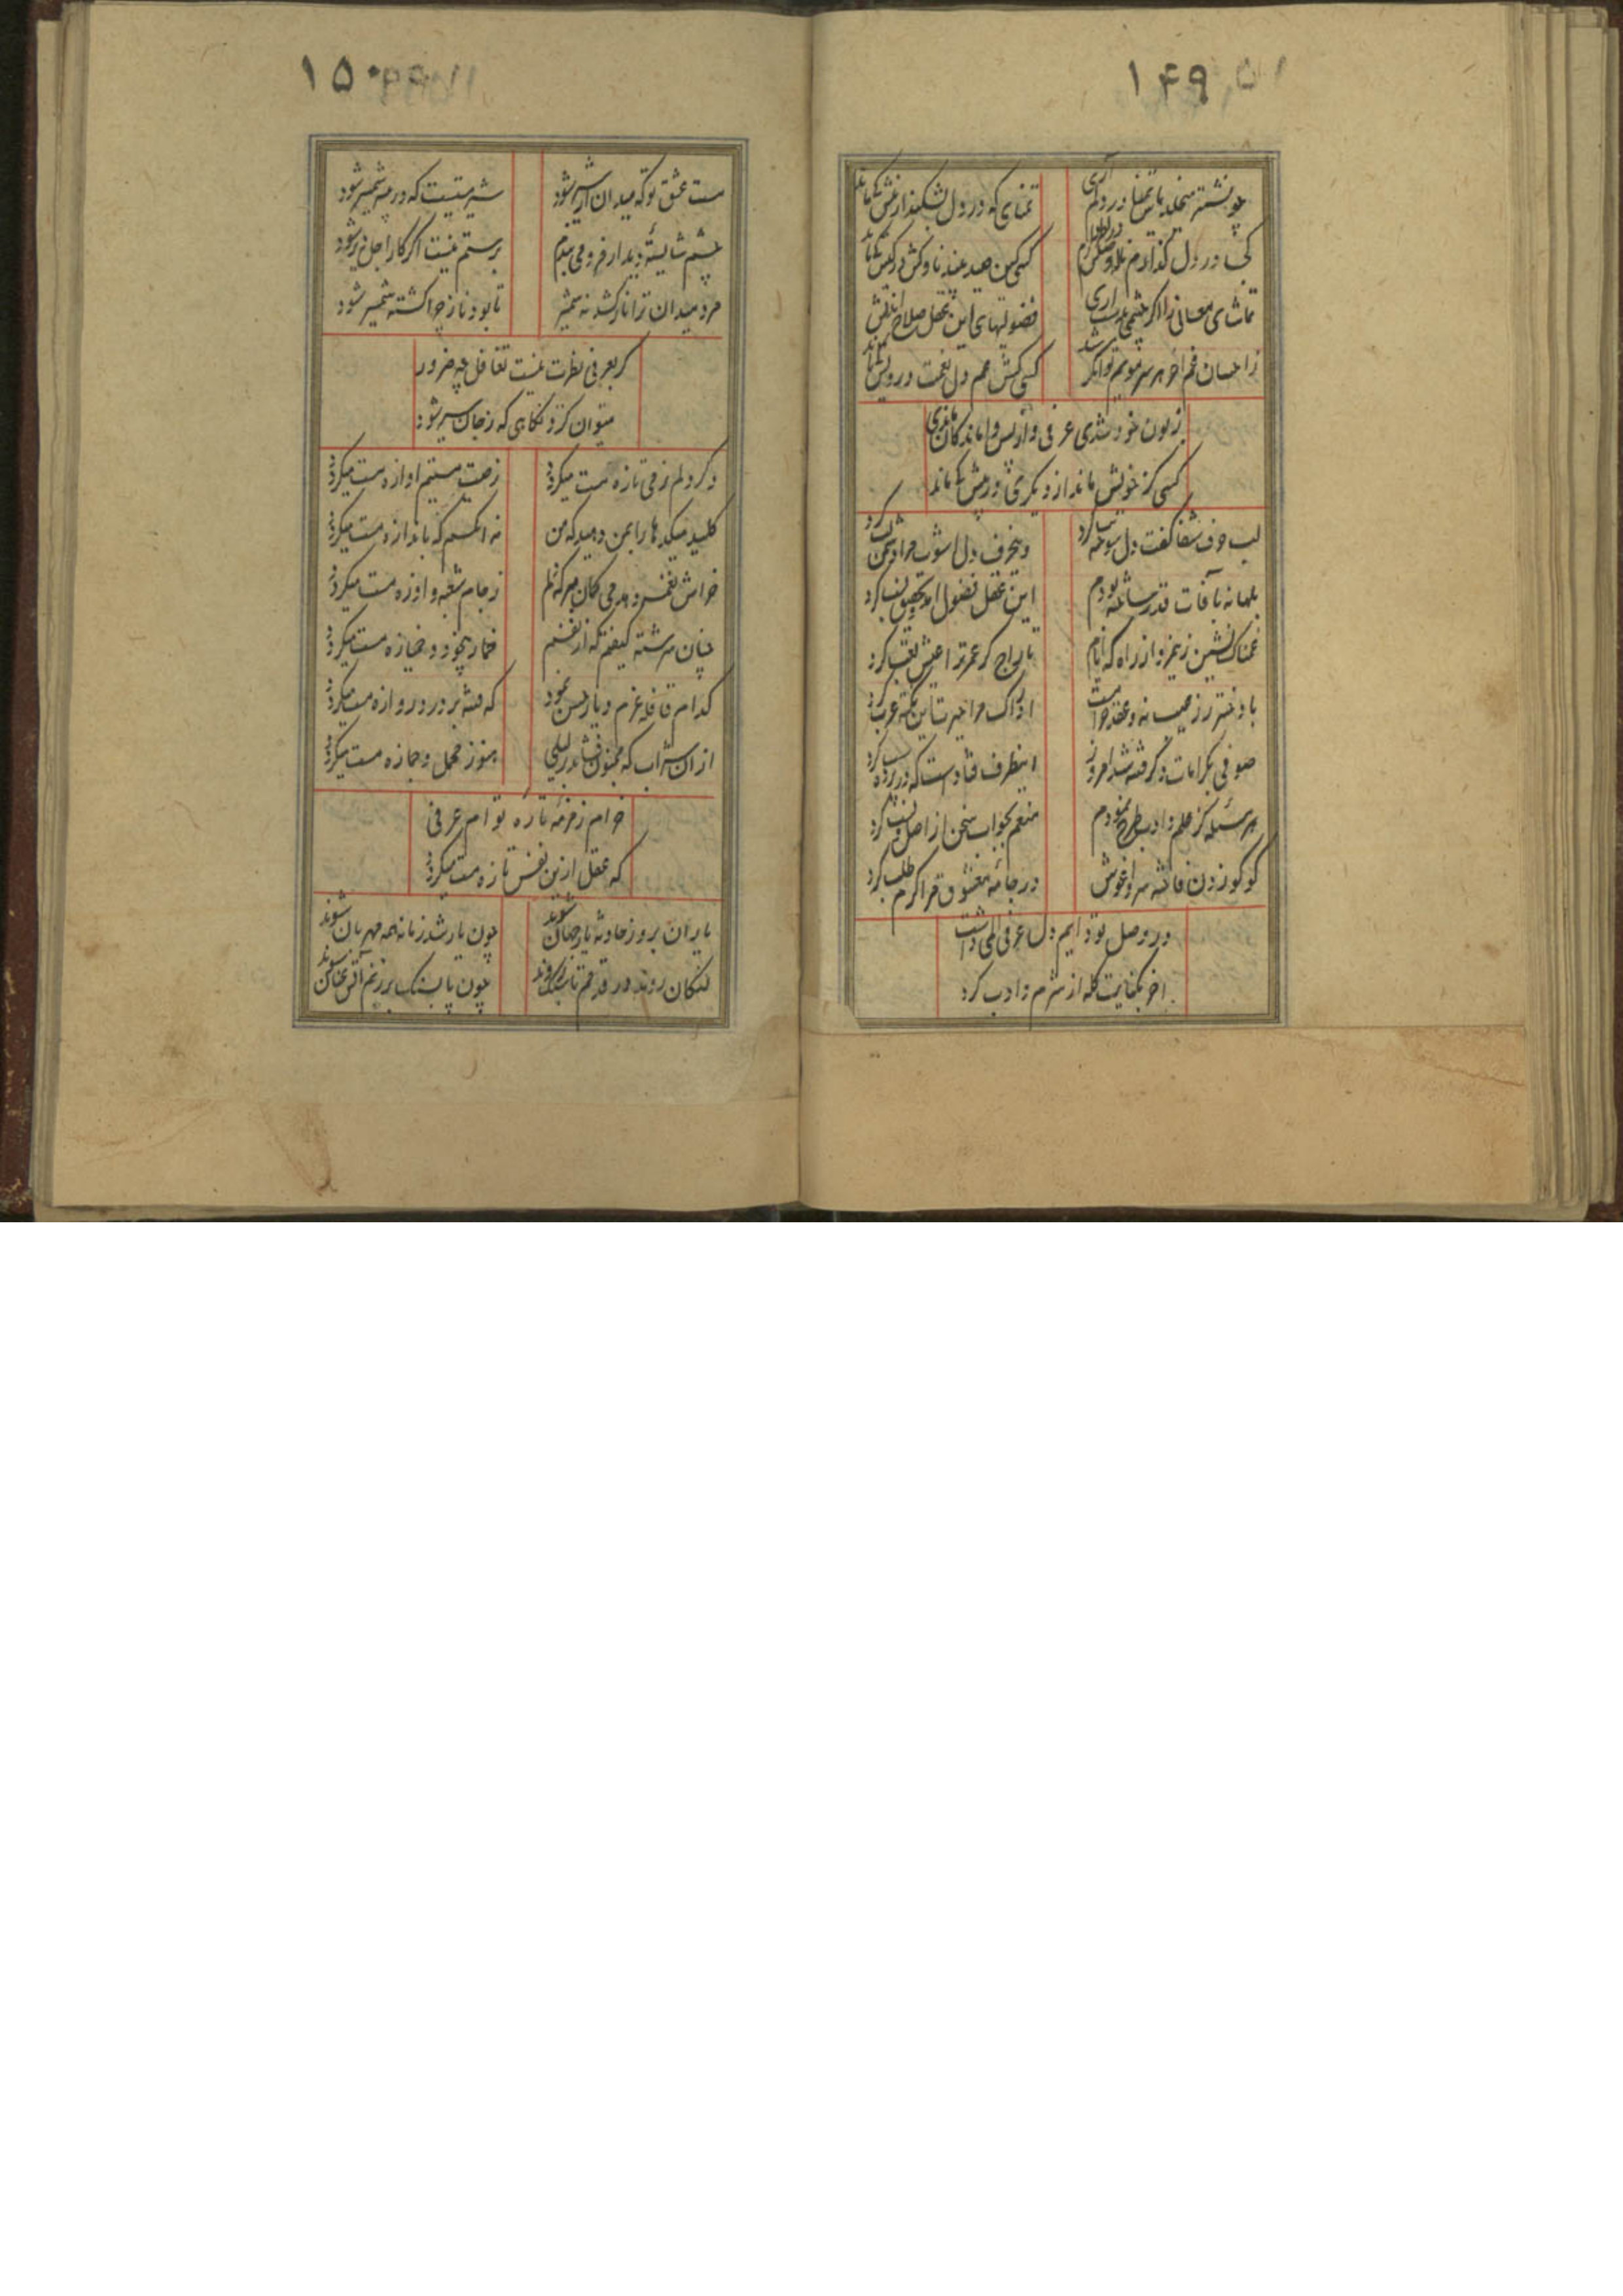 ۱۴۹
چو نشتر میخلد یاس تمنا در دلم آری
تمنای که در دل بشکند از نیش کم نماند
کجا در دل گذارم
کسی کین صید بیند ناوکش در کیش کم نماند
تماشای معانی را اگر چشمی بدست آری
فضولیهای این عقل صلاح اندیش کم نماند
ز احسان غم آخر هر سر مویم توانگر شد
کسی کش غم دل نعمت درویش کم نماند
زبون خود شدی عرفی و از پس واماندگان ماندی
کسی کز خویش ماند از دیگری در پیش کم نماند
لب حرف شفا گفت دل سوخته تب کرد
وین حرف دل آشوب مرا دشمن لب کرد
بیگانه بآفات قدر ساخته بودم
این عقل فضول آمد و تحقیق سبب کرد
غمناک نشین زخم و از راه که ایام
تاراج گر عمر ترا عیش لقب کرد
با دختر رز صحبت نه و عقد حرامست
ادراک مرا حیرت این نکته عرب کرد
صوفی بکرامات و گرفته شد امروز
اینطرف فتادست که در پرده سبب کرد
هر مسئله کز علم و ادب طرح نمودم
منعم بجواب سخن از اصل و نسب کرد
کو کو زدن فاخته سرو آغوش
در جامه معشوق مرا گرم طلب کرد
در وصل تو دایم دل عرفی المی داشت
آخر بکفایت گله از شرم و ادب کرد
۱۵۰
مست عشق تو که میدان از شیر شود
شیر مستیست که در بیشه شمشیر شود
چشم شایسته دیدار فرو می بندم
بر ستم نیست اگر کار اجل دیر شود
مرد میدان ترا ناز کشد نه شمشیر
تا بود ناز چرا کشته شمشیر شود
گر بعرفی نظرت نیست تغافل چه ضرور
میتوان کرد نگاهی که ز جان سیر شود
دگر دلم ز می تازه مست میگردد
ز صیت مستیم آوازه مست میگردد
کلید میکدها را بمن دهید که من
نه آنکسم که باندازه مست میگردد
خراش نغمه و می کان بهر که دهم
ز جام شعبه و آوازه مست میگردد
چنان سرشته کیفم که از نفسم
خمار بیخود و خمیازه مست میگردد
کدام قافله عزم دیار حسن نمود
که فتنه بر در دروازه مست میگردد
ازان شراب که مجنون فشاند بر لیلی
هنوز محمل و جمازه مست میگردد
خرام زمزمه تازه تو ام عرفی
که عقل ازین نفس تازه مست میگردد
یاران بروز حادثه یار جهان شوند
چون یار شد زمانه همه مهربان شوند
لنگان روند در قدم تا سبک روند
چون پا بسنگ بر زنم آتش عنان شوند